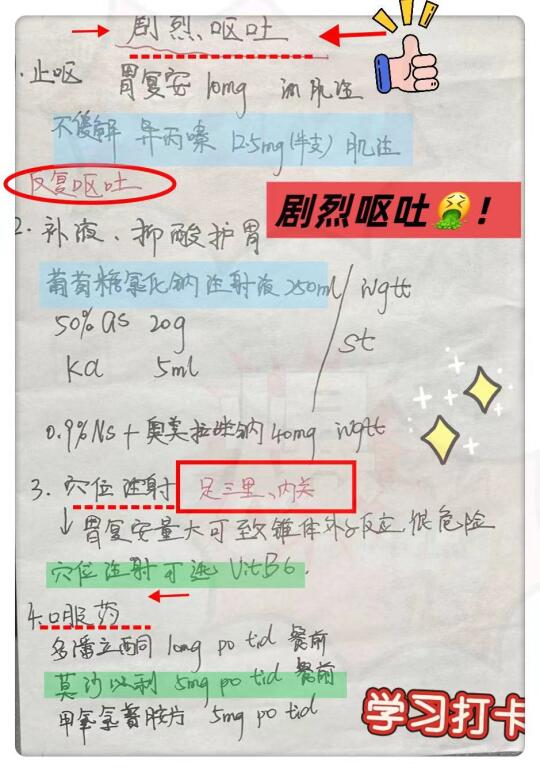 剧烈呕吐
1.止呕 胃复安 10mg im 肌注
不缓解 异丙嗪 12.5mg(半支) 肌注
反复呕吐
剧烈呕吐🤮！
2.补液、抑酸护胃
葡萄糖氯化钠注射液 250ml / ivgtt
50% GS 20g
st
KCl 5ml
0.9%NS+奥美拉唑钠 40mg ivgtt
3.穴位注射 足三里、内关
↓胃复安量大可致锥体外反应,很危险
穴位注射可选 VitB6.
4.口服药
多潘立酮 10mg po tid 餐前
莫沙必利 5mg po tid 餐前
甲氧氯普胺片 5mg po tid
学习打卡